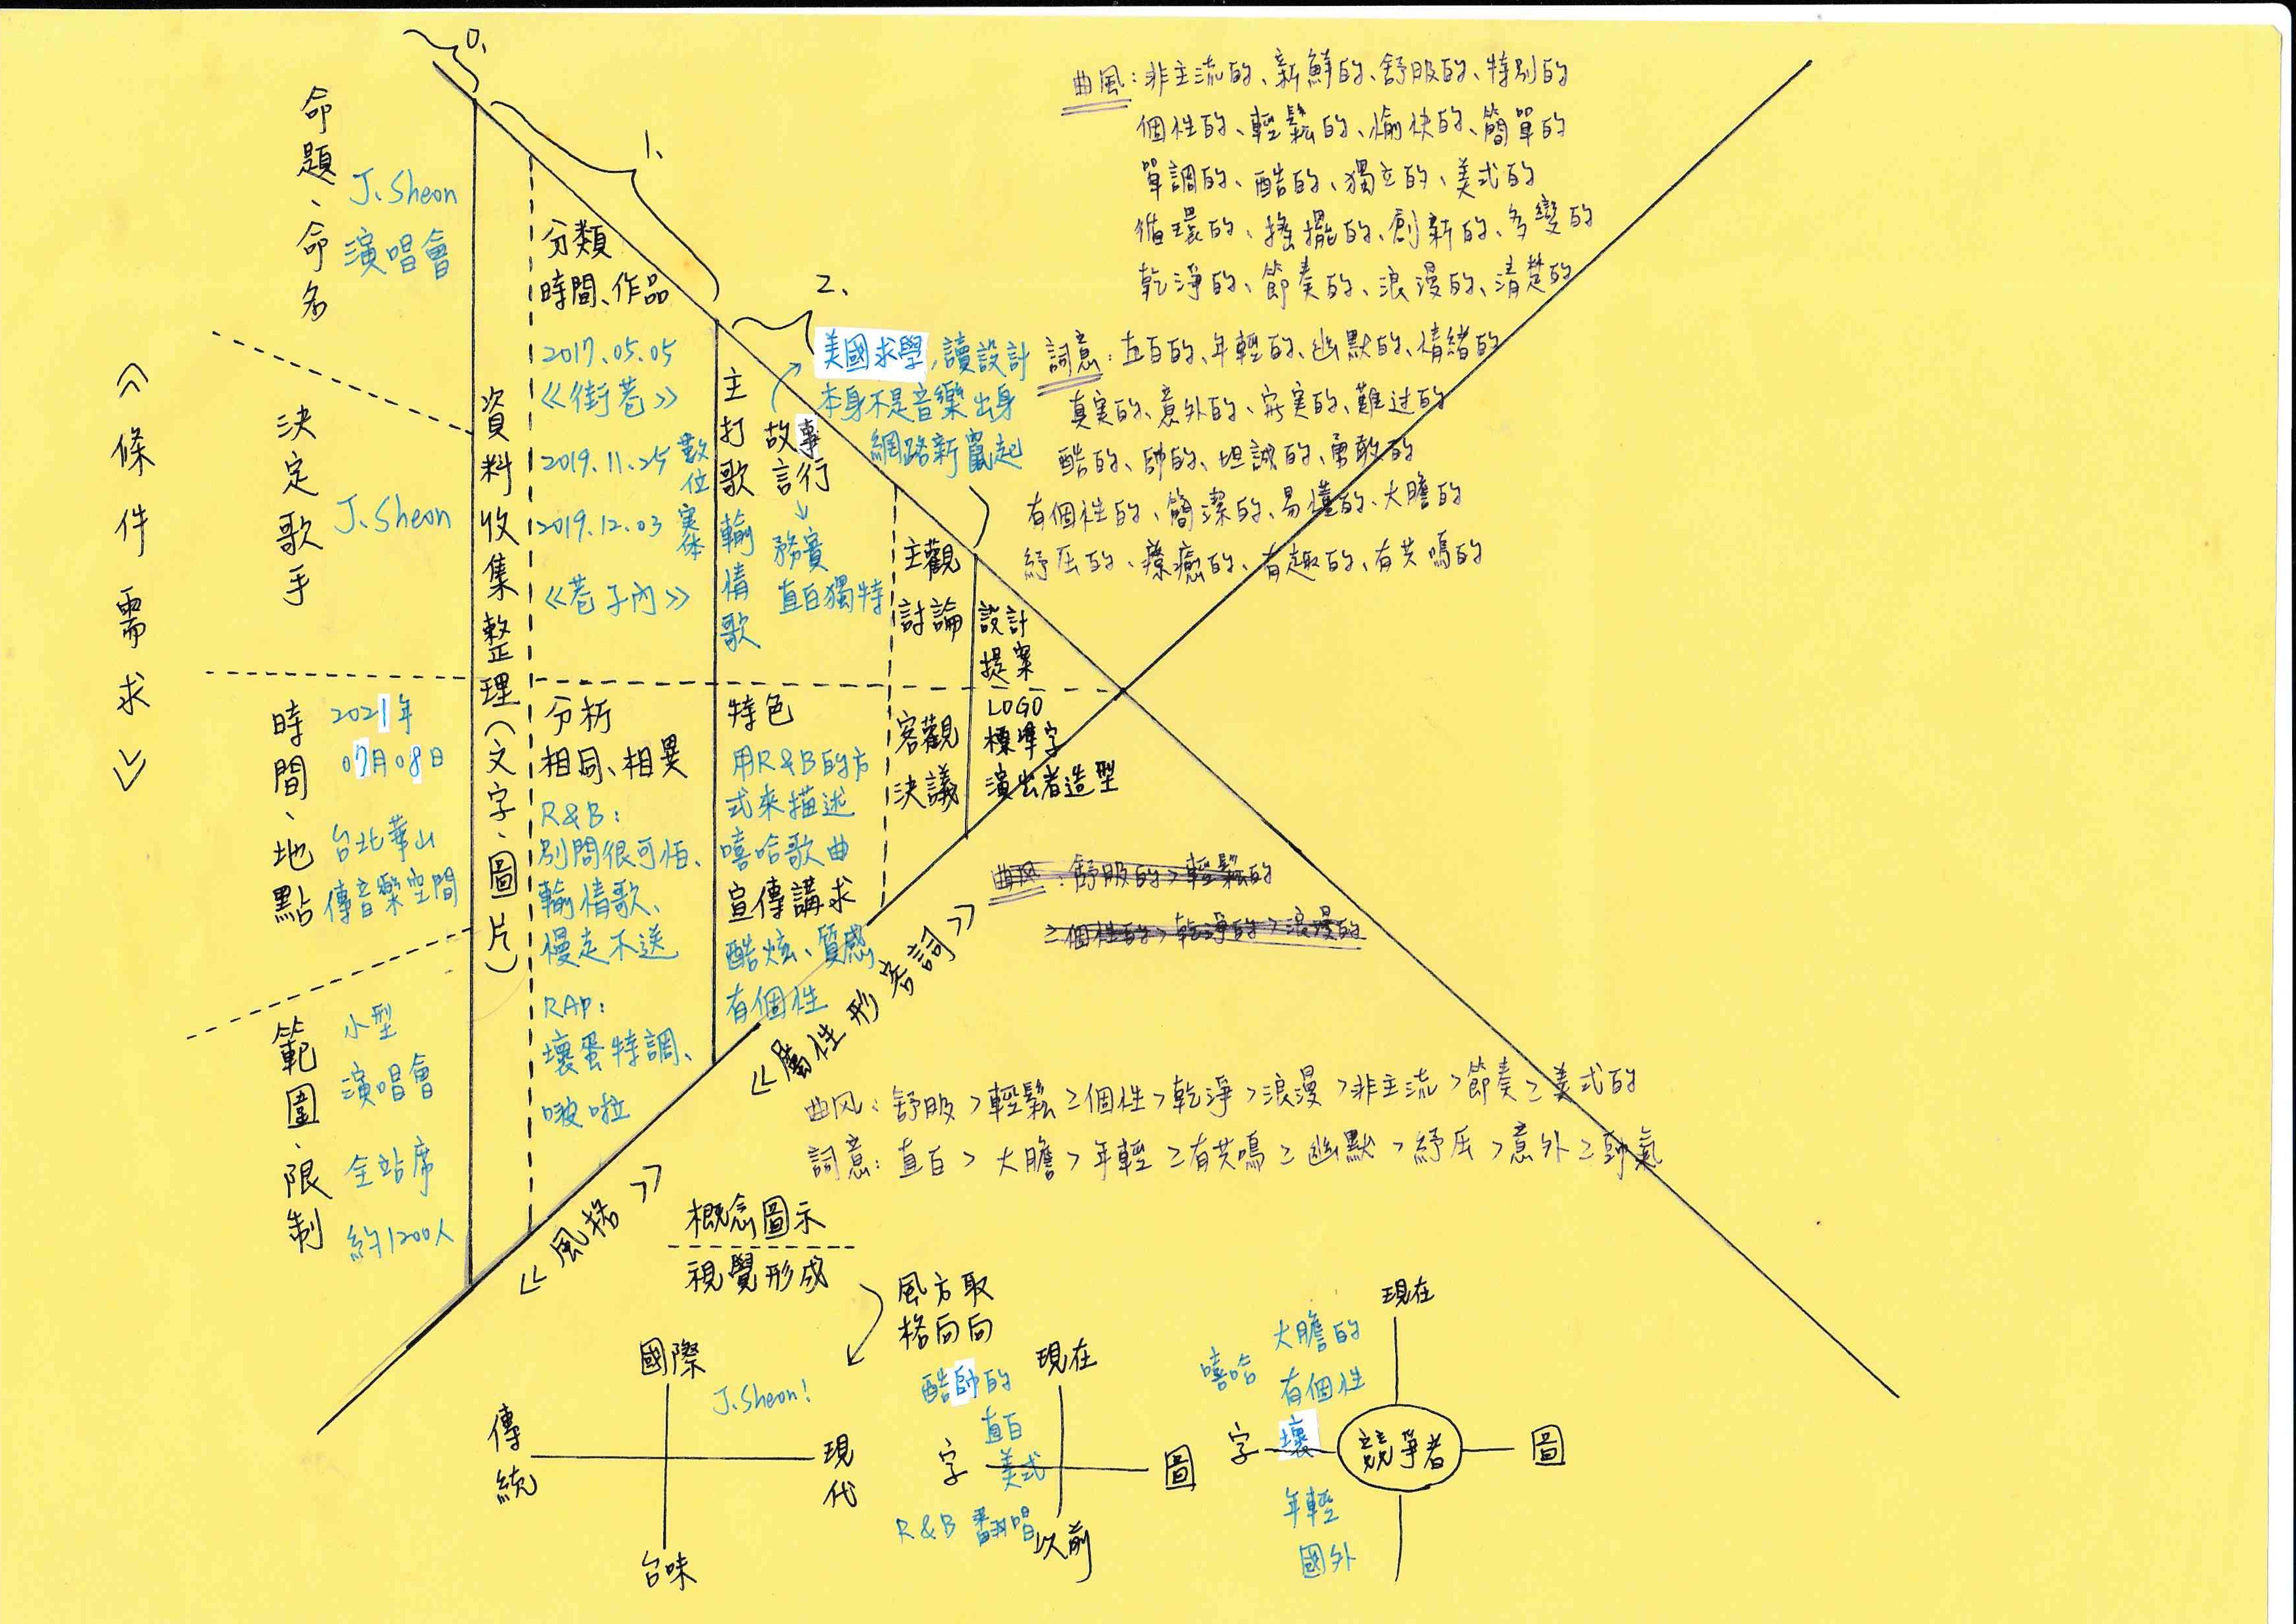 0.
1.
2.
《條件需求》
命題、命名
J.Sheon
演唱會
決定歌手
J.Sheon
時間、地點
2021年
07月08日
台北華山
傳音樂空間
範圍、限制
小型
演唱會
全站席
約1200人
資料收集整理(文字、圖片)
分類
時間、作品
2017.05.05
《街巷》
2019.11.25 數位
2019.12.03 実体
《巷子內》
分析
相同、相異
R&B:
別問很可怕、
輸情歌、
慢走不送
RAP:
壞蛋特調、
啵啦
主打歌 輸情歌
故事
言行
美國求學,讀設計
本身不是音樂出身
網路新竄起
務實
直白獨特
特色
用R&B的方
式來描述
嘻哈歌曲
宣傳講求
酷炫、質感
有個性
主觀
討論
客觀
決議
設計
提案
LOGO
標準字
演出者造型
曲風:非主流的、新鮮的、舒服的、特別的
個性的、輕鬆的、愉快的、簡單的
單調的、酷的、獨立的、美式的
循環的、搖擺的、創新的、多變的
乾淨的、節奏的、浪漫的、清楚的
詞意:直白的、年輕的、幽默的、情緒的
真実的、意外的、寫実的、難过的
酷的、帥的、坦誠的、勇敢的
有個性的、簡潔的、易懂的、大膽的
紓压的、療癒的、有趣的、有共鳴的
曲风:舒服的>輕鬆的
≥個性的>乾淨的>浪漫的
《屬性形容詞》
曲风:舒服>輕鬆≥個性>乾淨>浪漫>非主流>節奏≥美式的
詞意:直白>大膽>年輕≥有共鳴≥幽默>紓压>意外≥帥氣
《風格》
概念圖示
視覺形成
風格
方向
取向
國際
J.Sheon!
傳統
現代
台味
現在
酷帥的
直白
字
美式
圖
R&B 翻唱
以前
現在
嘻哈
大膽的
有個性
字
壞
競爭者
圖
年輕
國外